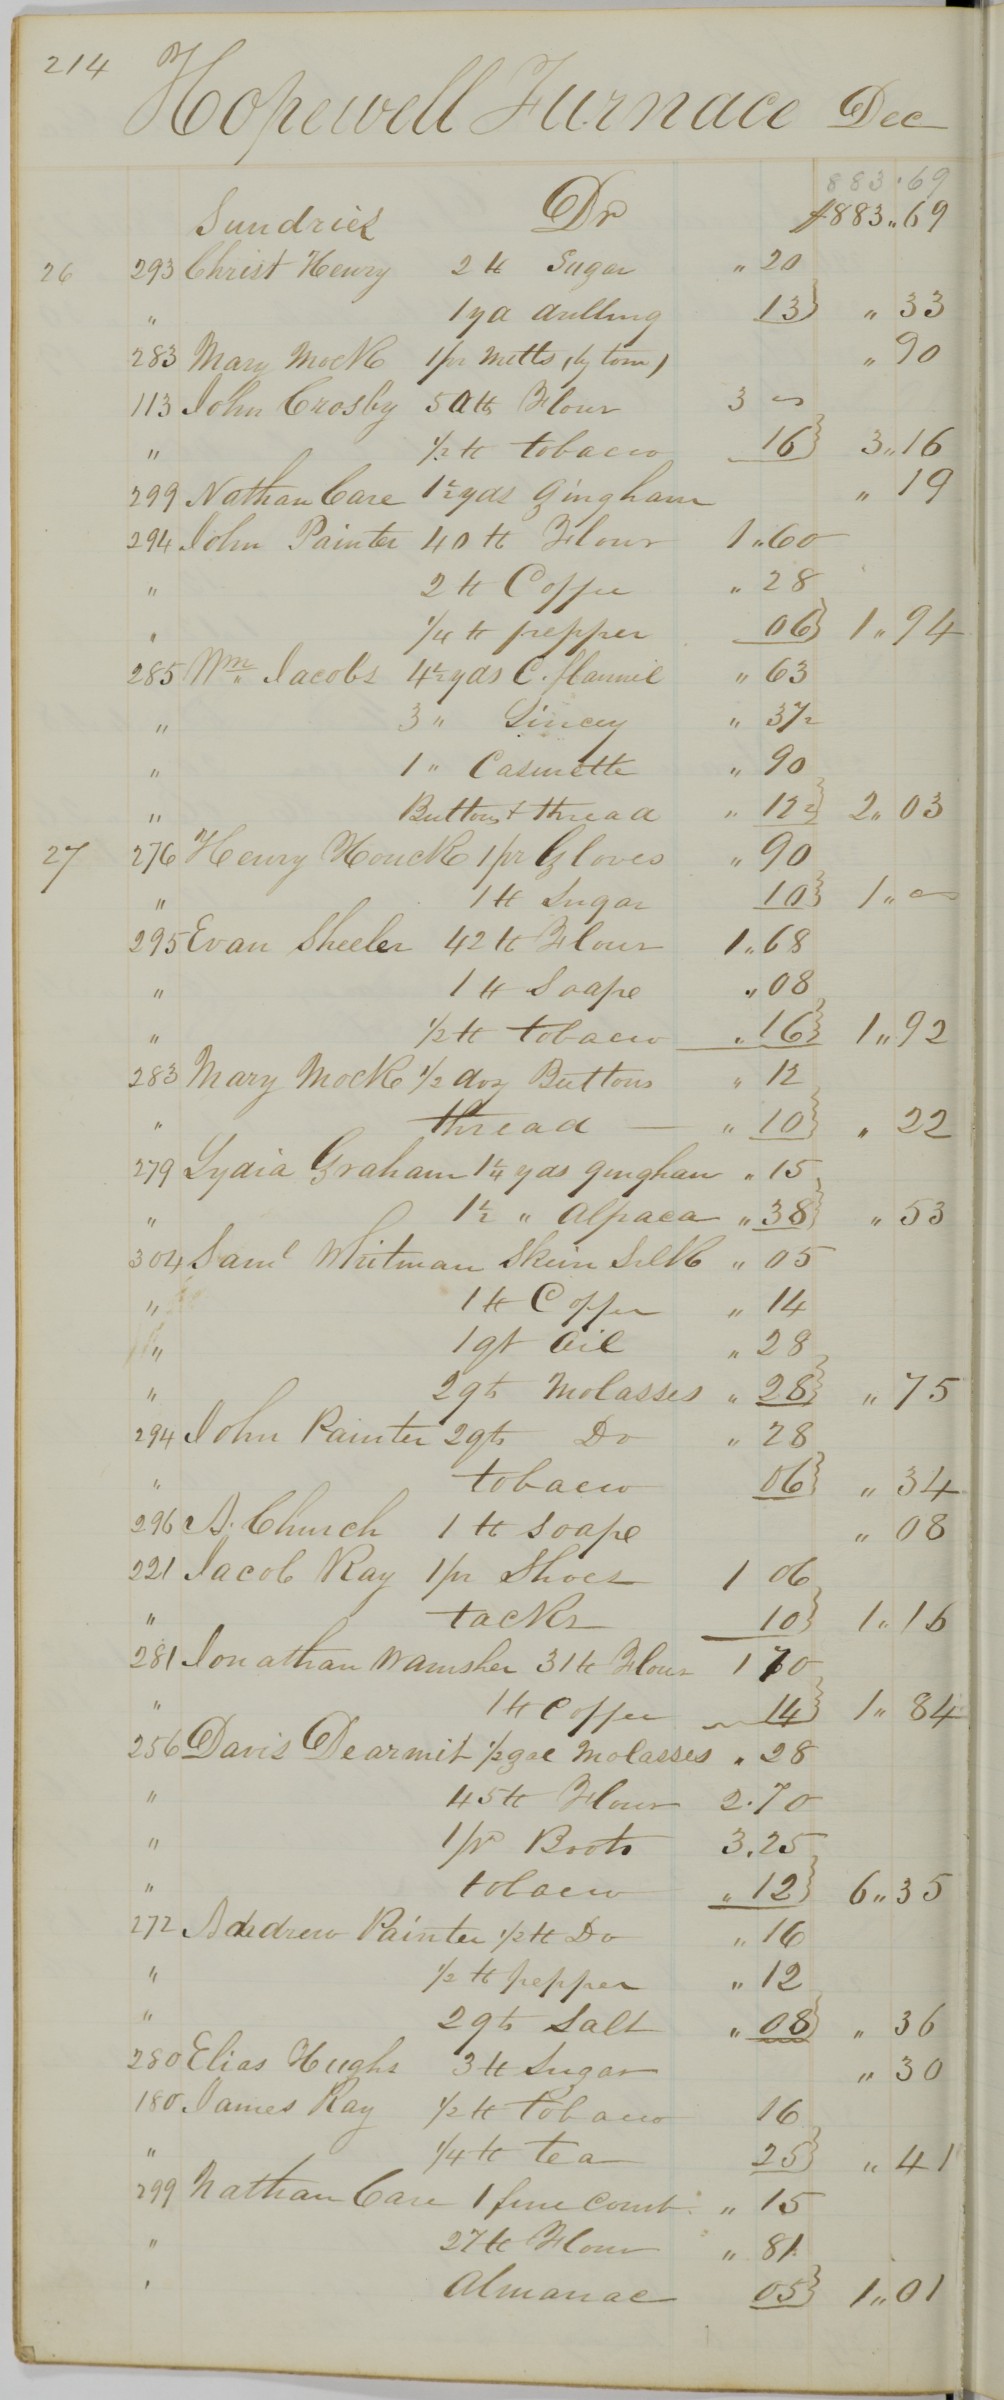 214 Hopewell Furnace Dec
883.69
Sundries Dr 1883.,69
26 293 Christ Henry 2 lb Sugar " 20
" 1 yd drilling 13 " 33
283 Mary Mock 1 pr Mitts (by tom) " 90
113 John Crosby 50 lb Flour 3 —
" 1/2 lb tobacco 16 3.,16
299 Nathan Care 1 1/2 yds Gingham " 19
294 John Painter 40 lb Flour 1.,60
" 2 lb Coffee " 28
" 1/4 lb pepper 06 1.,94
285 Wm Jacobs 4 1/2 yds C. flannel " 63
" 3 " Lincey " 37 1/2
" 1 " Casinette " 90
" Buttons & thread " 12 1/2 2.,03
27 276 Henry Houck 1 pr Gloves " 90
" 1 lb Sugar 10 1.,—
295 Evan Sheeler 42 lb Flour 1.,68
" 1 lb Soape " 08
" 1/2 lb tobacco " 16 1.,92
283 Mary Mock 1/2 doz Buttons " 12
" thread — " 10 " 22
279 Lydia Graham 1 1/4 yds gingham " 15
" 1 1/2 " Alpaca " 38 " 53
304 Saml Whitman Skein Silk " 05
" 1 lb Coffee " 14
" 1 qt Oil " 28
" 2 qts Molasses " 28 " 75
294 John Painter 2 qts Do " 28
" tobacco 06 " 34
296 A. Church 1 lb Soape " 08
221 Jacob Ray 1 pr Shoes 1 06
" tacks 10 1.,16
281 Jonathan Wamsher 31 lb Flour 1 70
" 1 lb Coffee 14 1.,84
256 Davis Dearmit 1/2 gal Molasses " 28
" 45 lb Flour 2.70
" 1 pr Boots 3.25
" tobacco " 12 6.,35
272 Andrew Painter 1/2 lb Do " 16
" 1/2 lb pepper " 12
" 2 qts Salt " 08 " 36
280 Elias Hughs 3 lb Sugar " 30
180 James Ray 1/2 lb tobacco 16
" 1/4 lb tea 25 " 41
299 Nathan Care 1 fine Comb " 15
" 27 lb Flour " 81
" Almanac 05 1.,01